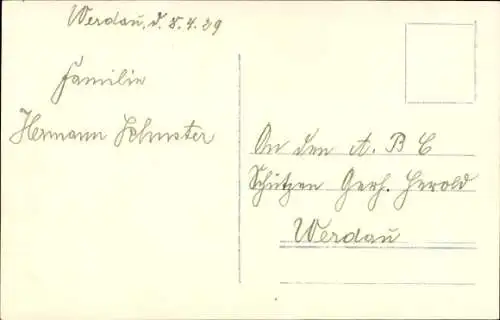 Werdau, d. 8.4.29
Familie
Hermann Schuster
An den A. B C
Schützen Gerh. Herold
Werdau